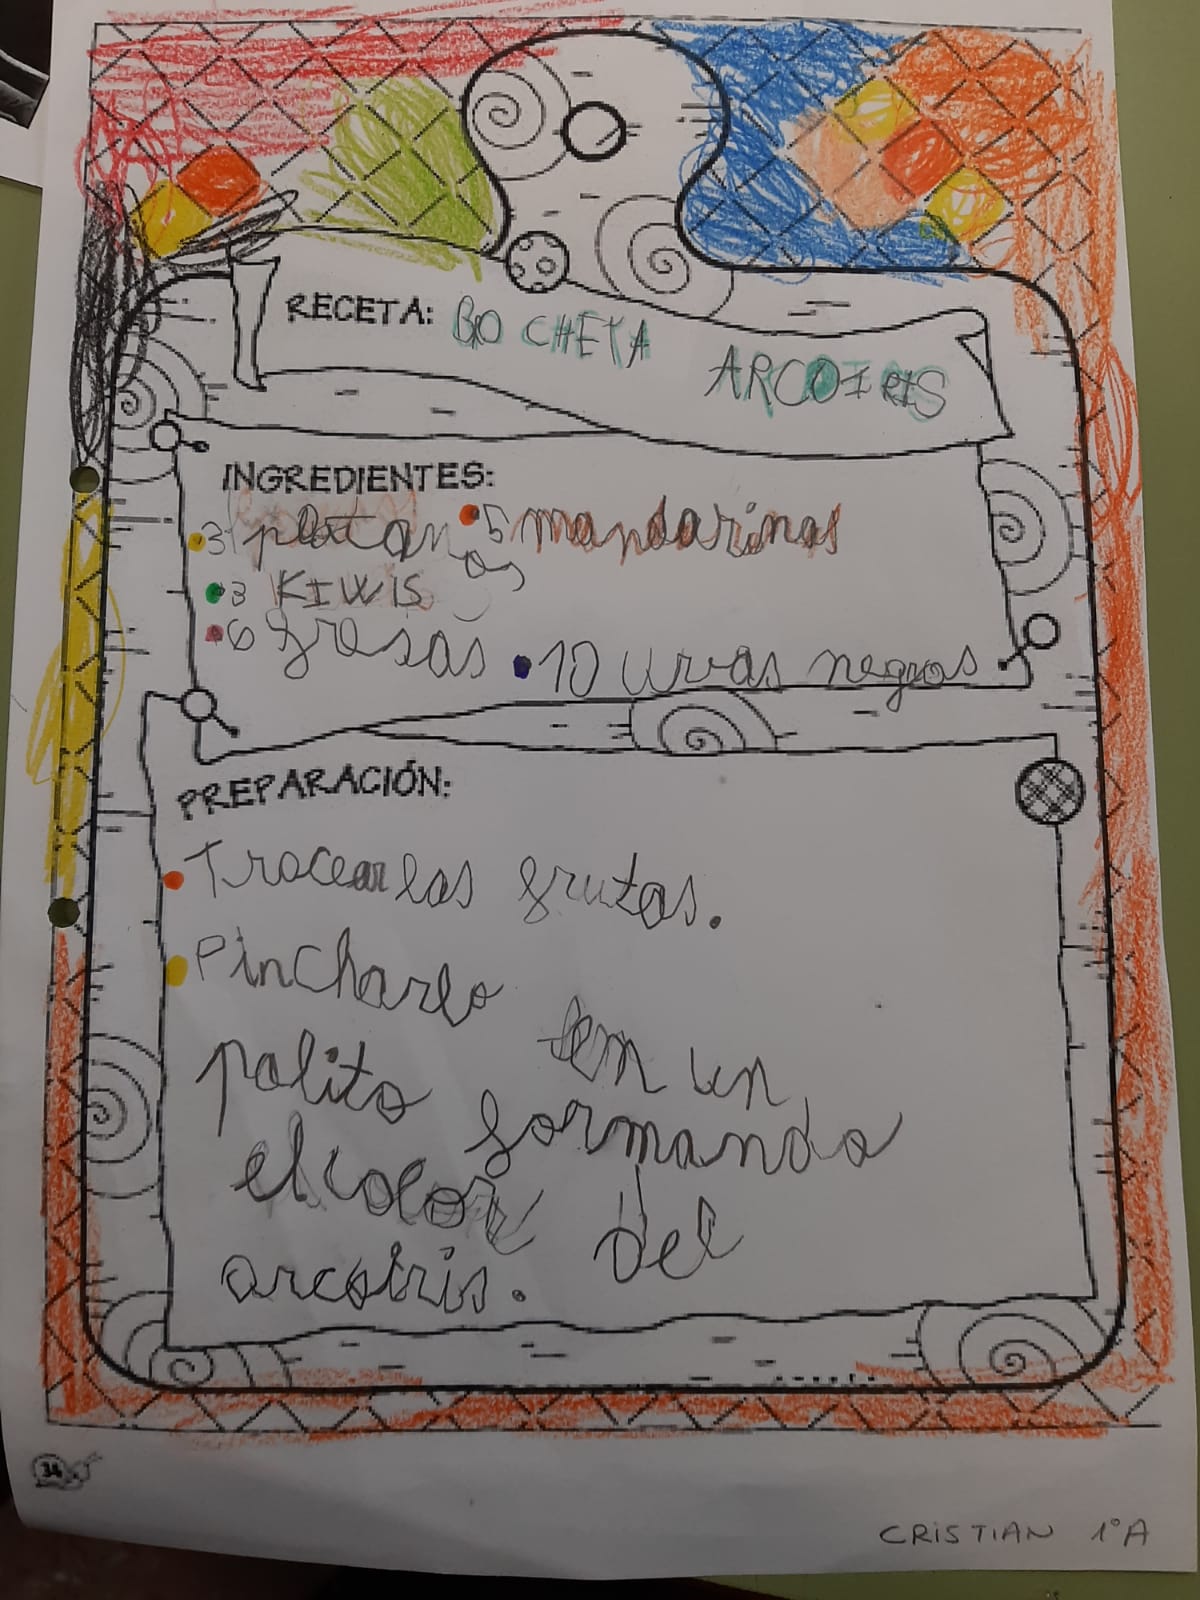 RECETA: BROCHETA ARCOIRIS
INGREDIENTES:
3 platanos 5 mandarinas
3 KIWIS
6 fresas 10 uvas negras
PREPARACIÓN:
Trocear las frutas.
Pincharlo en un
palito formando
el color del
arcoiris.
34
CRISTIAN 1ºA